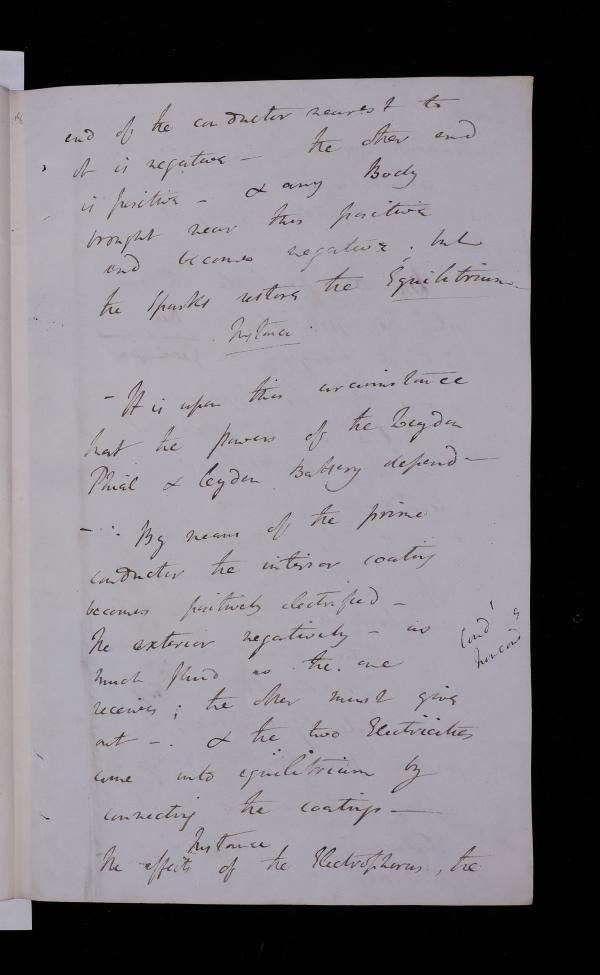 end of the conductor nearest to
it is negative — the other end
is positive — & any Body
brought near this positive
end becomes negative, but
the sparks restore the Equilibrium —
Instance.
— It is upon this circumstance
that the powers of the Leyden
Phial & Leyden Battery depend —
— By means of the prime
conductor the interior coating
becomes positively electrified —
the exterior negatively — as
much fluid as the one
receives; the other must give
out —. & the two Electricities
come into equilibrium by
connecting the coatings —
Instance
The effects of the Electrophorus, the
Cond
noncond